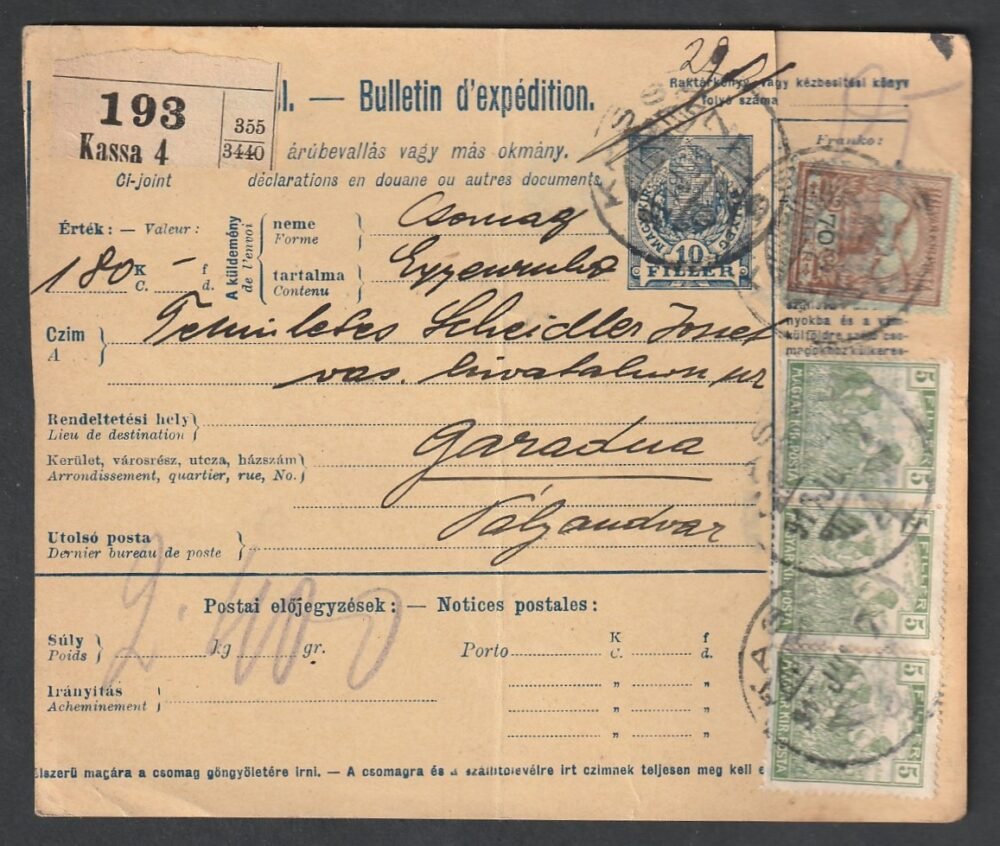 193
Kassa 4
355
3440
l. — Bulletin d'expédition.
Raktárkönyv, vagy kézbesitési könyv
folyó száma
árúbevallás vagy más okmány.
Ci-joint déclarations en douane ou autres documents.
Franko:
Érték: — Valeur:
180 K — f
C. d.
A küldemény
de l'envoi
neme
Forme
Csomag
tartalma
Contenu
MAGYAR
10
FILLER
70
Czim
A
Scheidler
vas. hivatalnok úr
nyokba és a vám-
külföldre szóló cso-
magokhoz külkeres-
Rendeltetési hely
Lieu de destination
Garadna
Kerület, városrész, utcza, házszám
Arrondissement, quartier, rue, No.
Utolsó posta
Dernier bureau de poste
5 FILLER 5
MAGYAR KIR. POSTA
5 FILLER 5
MAGYAR KIR. POSTA
5 FILLER 5
MAGYAR KIR. POSTA
KASSA
Postai előjegyzések: — Notices postales:
Súly
Poids
kg gr.
Porto K f
C. d.
" "
" "
" "
Irányitás
Acheminement
élszerü magára a csomag göngyöletére irni. — A csomagra és a szállitólevélre irt czimnek teljesen meg kell e